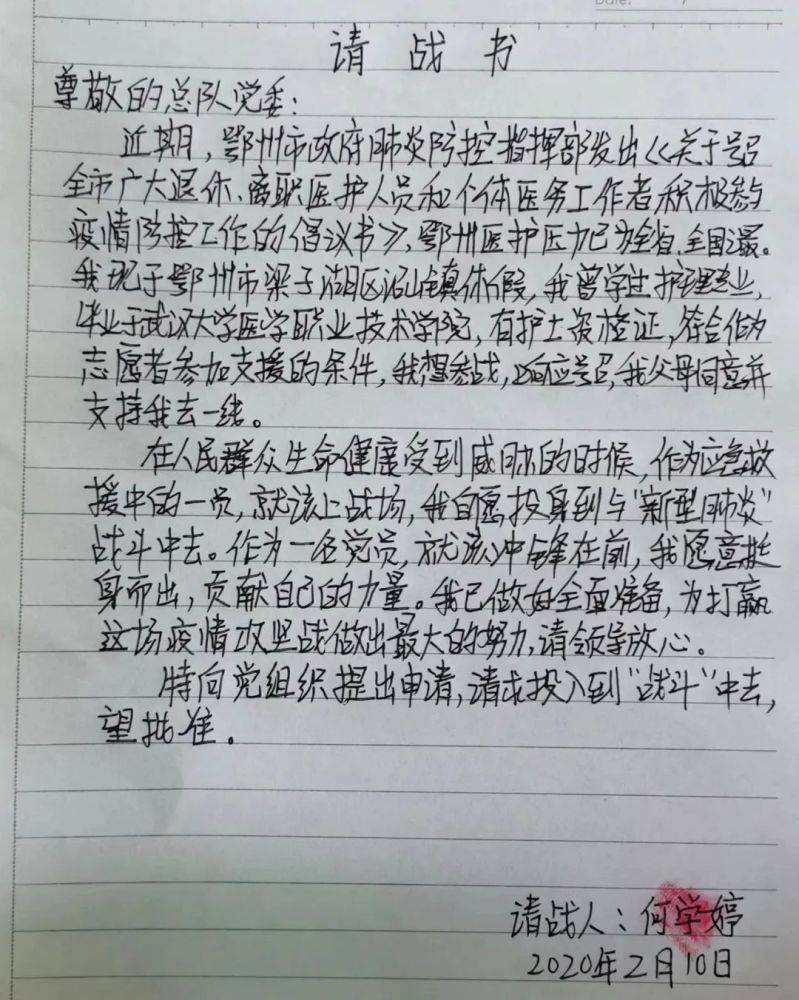 Date:
请战书
尊敬的总队党委:
近期,鄂州市政府肺炎防控指挥部发出《关于号召
全市广大退休、离职医护人员和个体医务工作者积极参与
疫情防控工作的倡议书》,鄂州医护压力已为全省、全国之最。
我现于鄂州市梁子湖区沼山镇休假,我曾学过护理专业,
毕业于武汉大学医学职业技术学院,有护士资格证,符合作为
志愿者参加支援的条件,我想参战,响应号召,我父母同意并
支持我去一线。
在人民群众生命健康受到威胁的时候,作为应急救
援中的一员,就该上战场,我自愿投身到与“新型肺炎”
战斗中去。作为一名党员,就该冲锋在前,我愿意挺
身而出,贡献自己的力量。我已做好全面准备,为打赢
这场疫情攻坚战做出最大的努力,请领导放心。
特向党组织提出申请,请求投入到“战斗”中去,
望批准。
请战人:何学婷
2020年2月10日